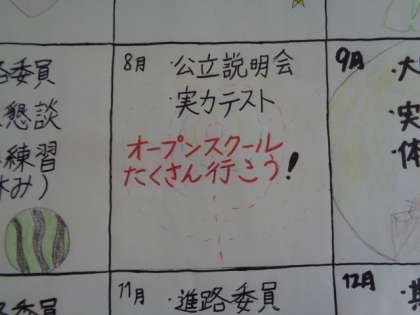 路委員
懇談
練習
休み)
8月 ・公立説明会
・実力テスト
オープンスクール
たくさん行こう!
9月
・大
・実
・体
路委員
11月 ・進路委員
12月
・期